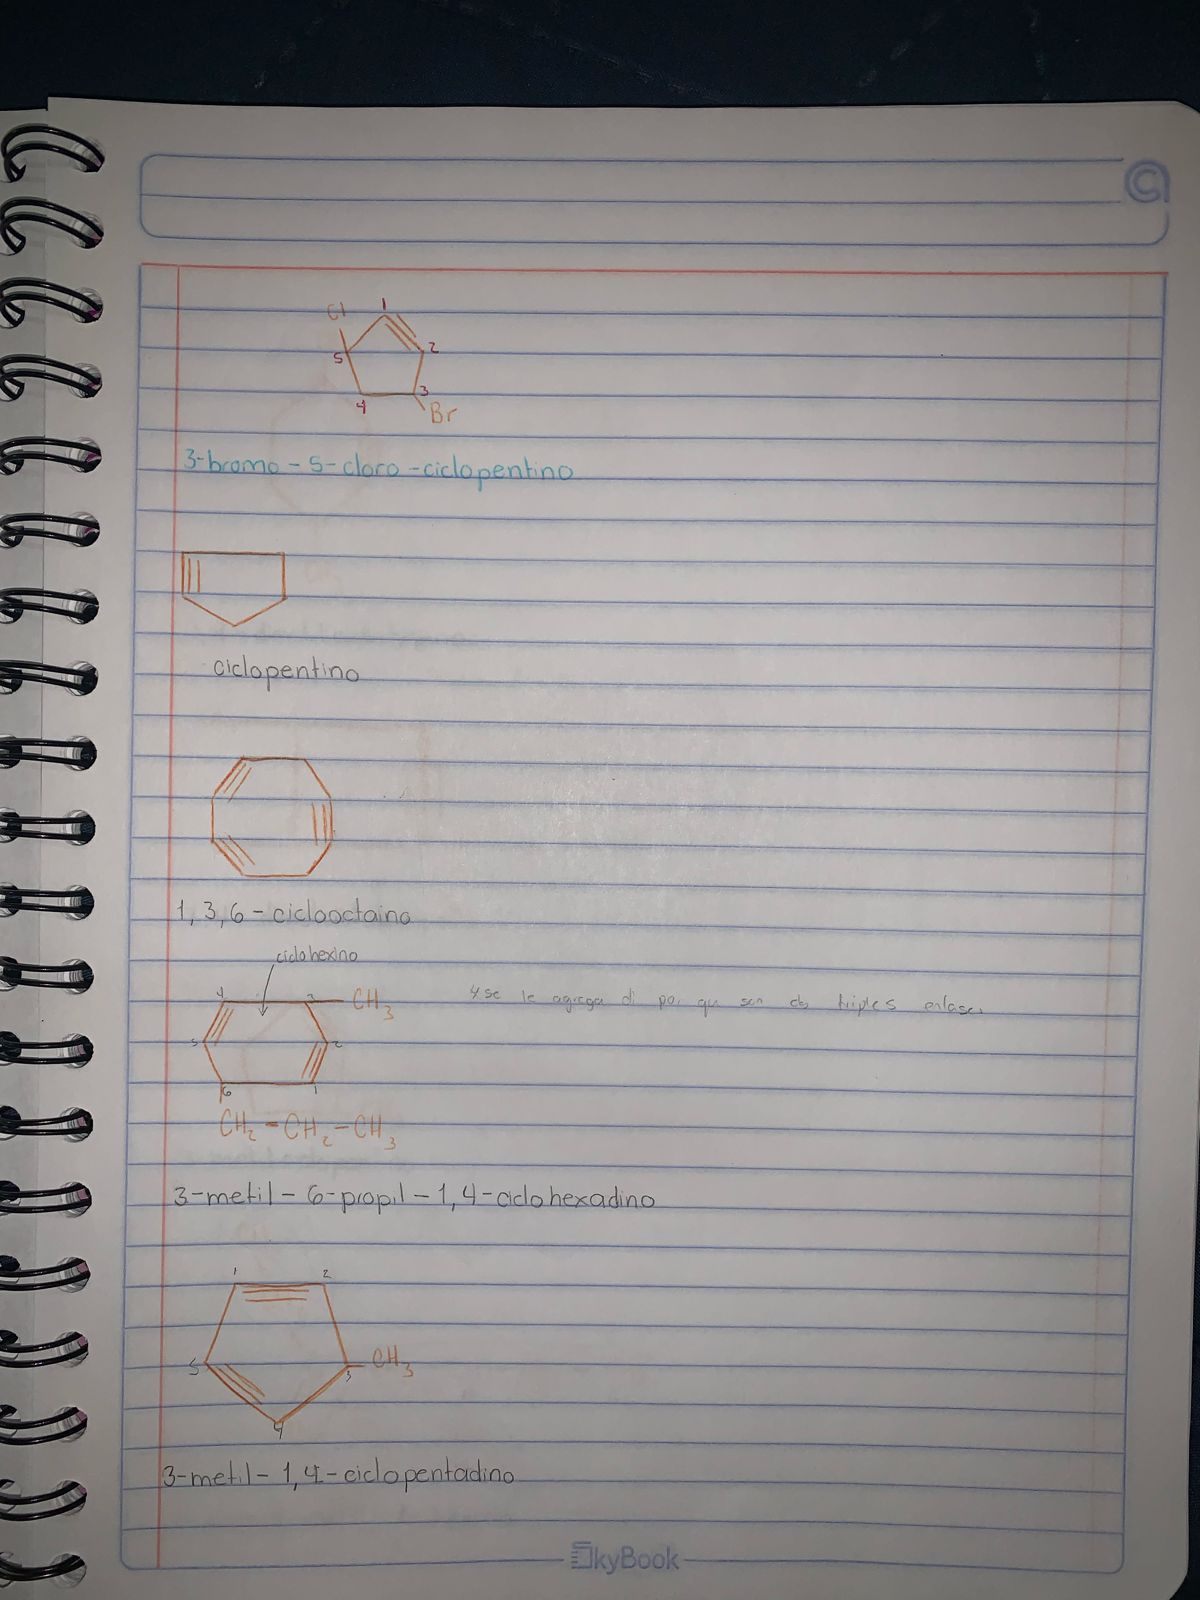 Cl 1
5 2
4 3
Br
3-bromo-5-cloro-ciclopentino
ciclopentino
1,3,6-ciclooctaino
ciclohexino
4 3 CH3
*se le agrega di por que son dos triples enlases
5 2
6 1
CH2-CH2-CH3
3-metil-6-propil-1,4-ciclohexadino
1 2
5 3 CH3
4
3-metil-1,4-ciclopentadino
SkyBook